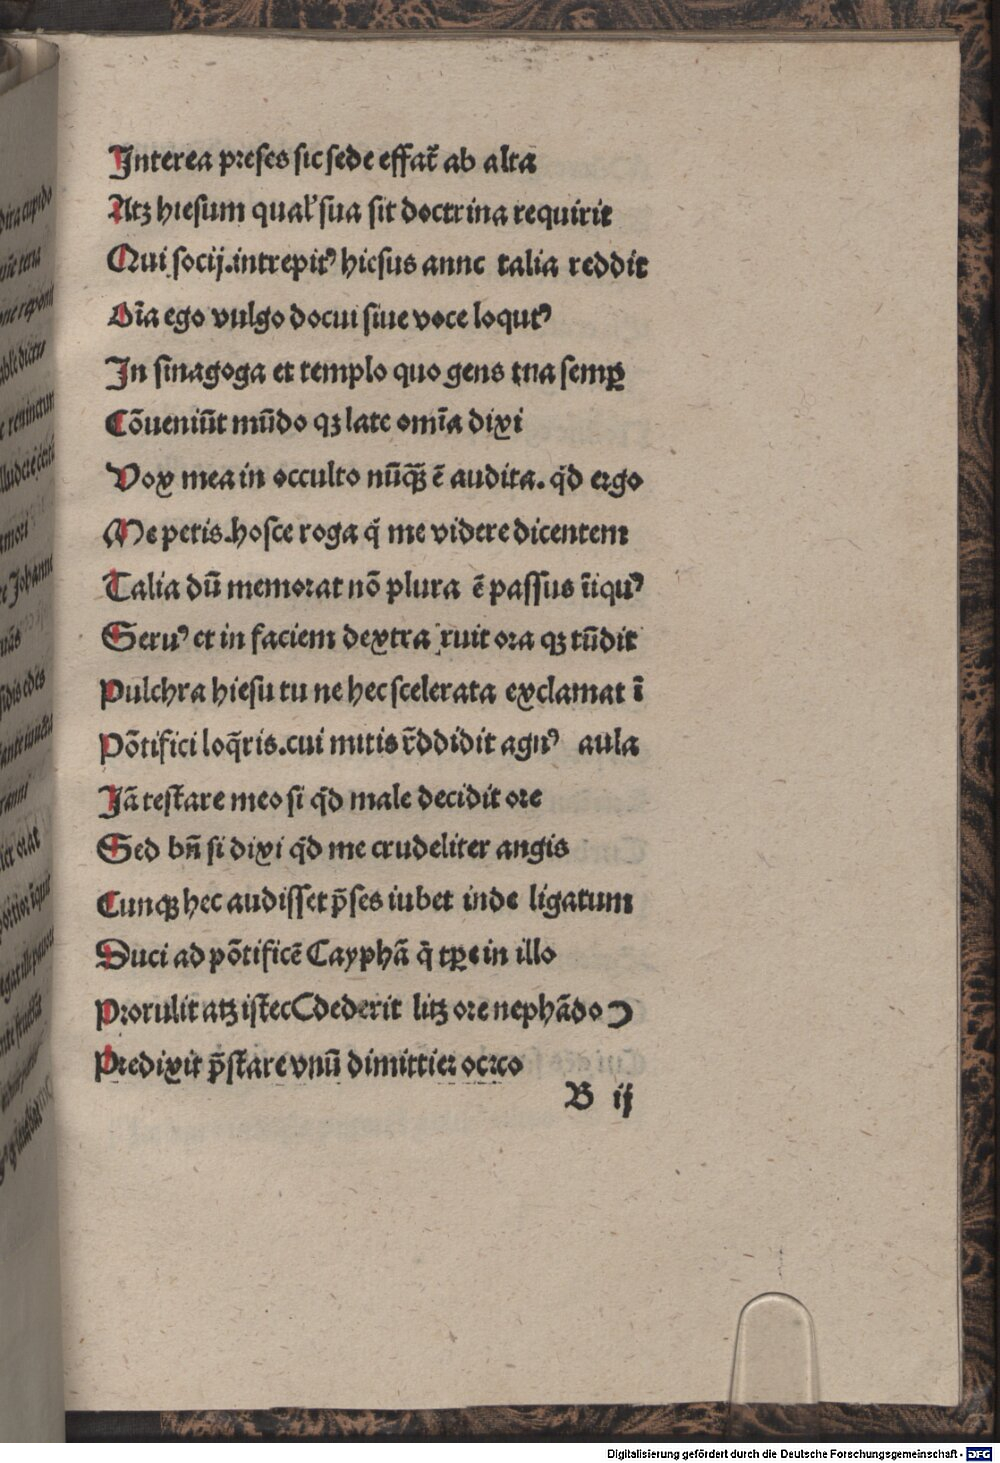 Interea preses sic sede effat̃ ab alta
Atqꝫ hiesum qualꝰ sua sit doctrina requirit
Qui socij.intrepitꝰ hiesus anne talia reddit
Oīa ego vulgo docui siue voce loqutꝰ
In sinagoga et templo quo gens tua semꝑ
Cōueniūt mūdo qꝫ late omīa dixi
Vox mea in occulto nūqꝫ̄ ē audita. qd̄ ergo
Me petis.hosce roga q̄ me videre dicentem
Talia dū memorat nō plura ē passus īiquꝰ
Seruꝰ et in faciem dextra ruit ora qꝫ tūdit
Pulchra hiesu tu ne hec scelerata exclamat ī
Pōtifici loq̄ris.cui mitis r̄ddidit agnꝰ aula
Iā testare meo si qd̄ male decidit ore
Sed bñ si dixi qd̄ me crudeliter angis
Cunqꝫ hec audisset p̄ses iubet inde ligatum
Duci ad pōtificē Cayphā q̄ tꝑe in illo
Protulit atqꝫ istec Cdederit litꝫ ore nephādo Ɔ
Predixit p̄stare vnū dimittier orco
B ij
dira cupido
Digitalisierung gefördert durch die Deutsche Forschungsgemeinschaft - DFG